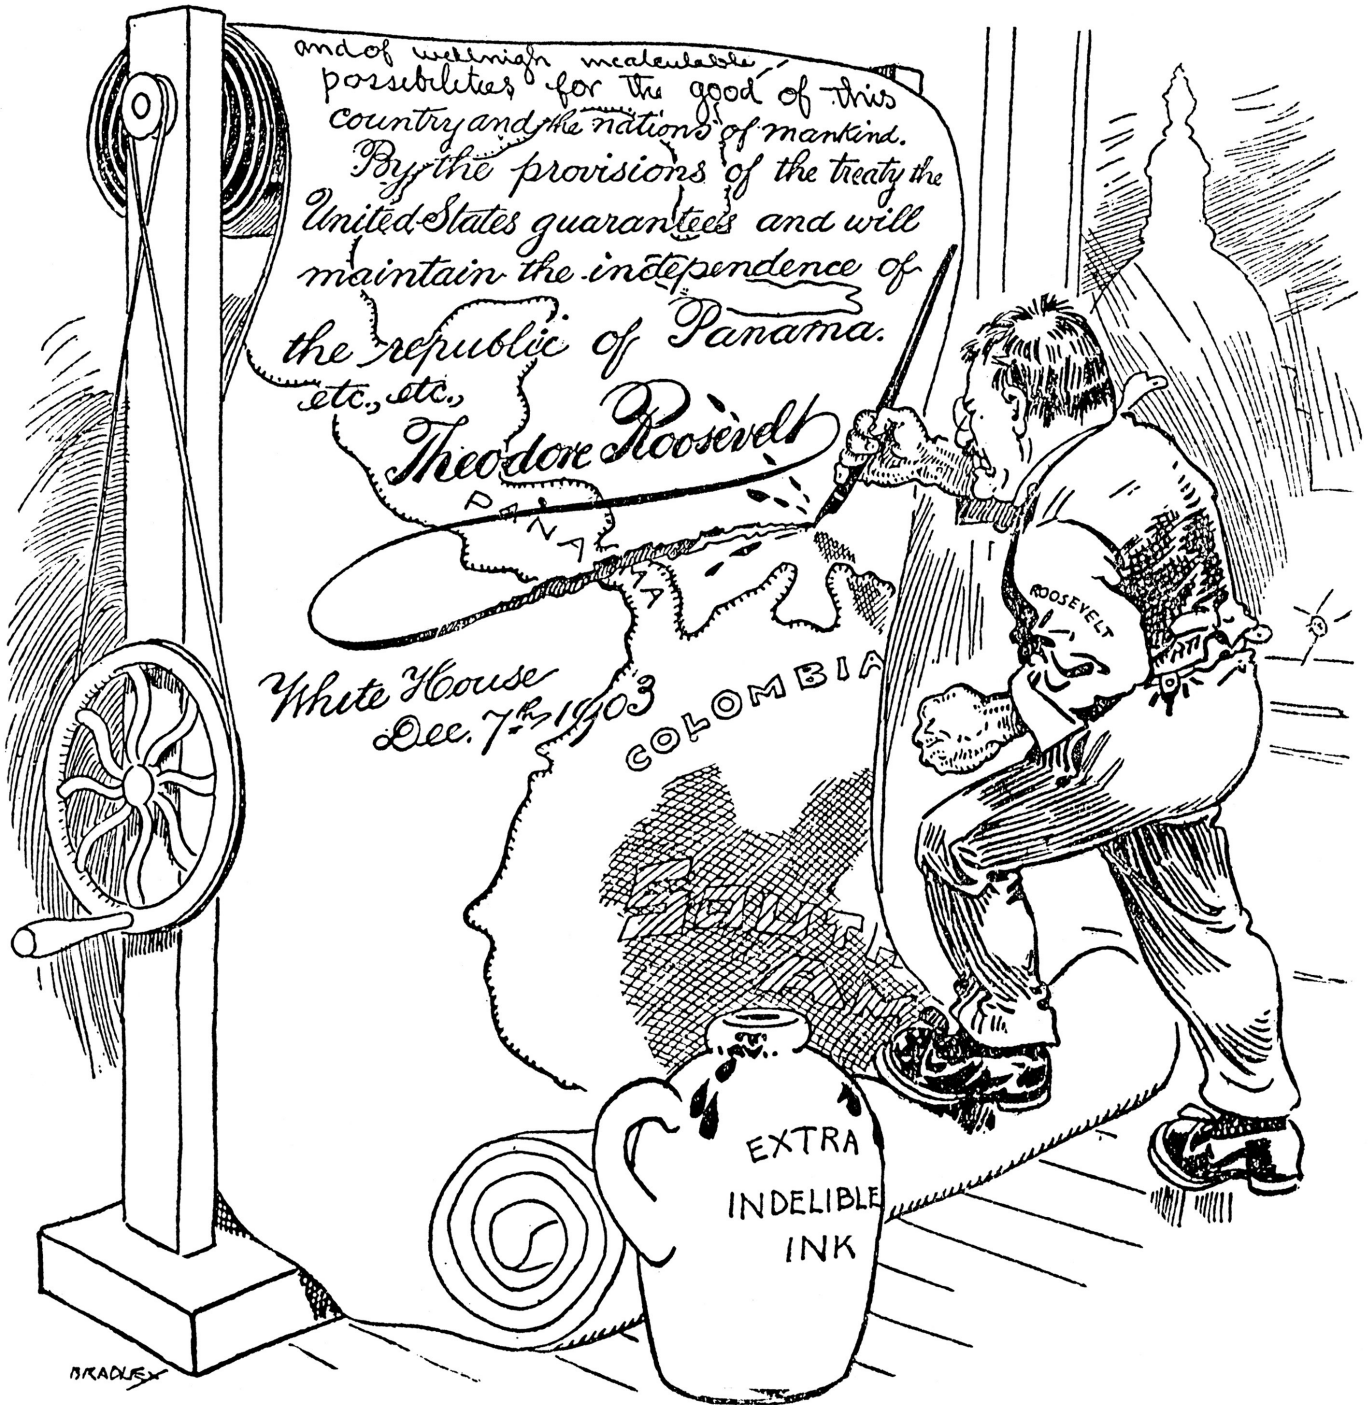 and of wellnigh incalculable
possibilities for the good of this
country and the nations of mankind.
By the provisions of the treaty the
United States guarantees and will
maintain the independence of
the republic of Panama.
etc., etc.,
Theodore Roosevelt
PANAMA
White House
Dec. 7th, 1903
COLOMBIA
ROOSEVELT
EXTRA
INDELIBLE
INK
BRADLEY